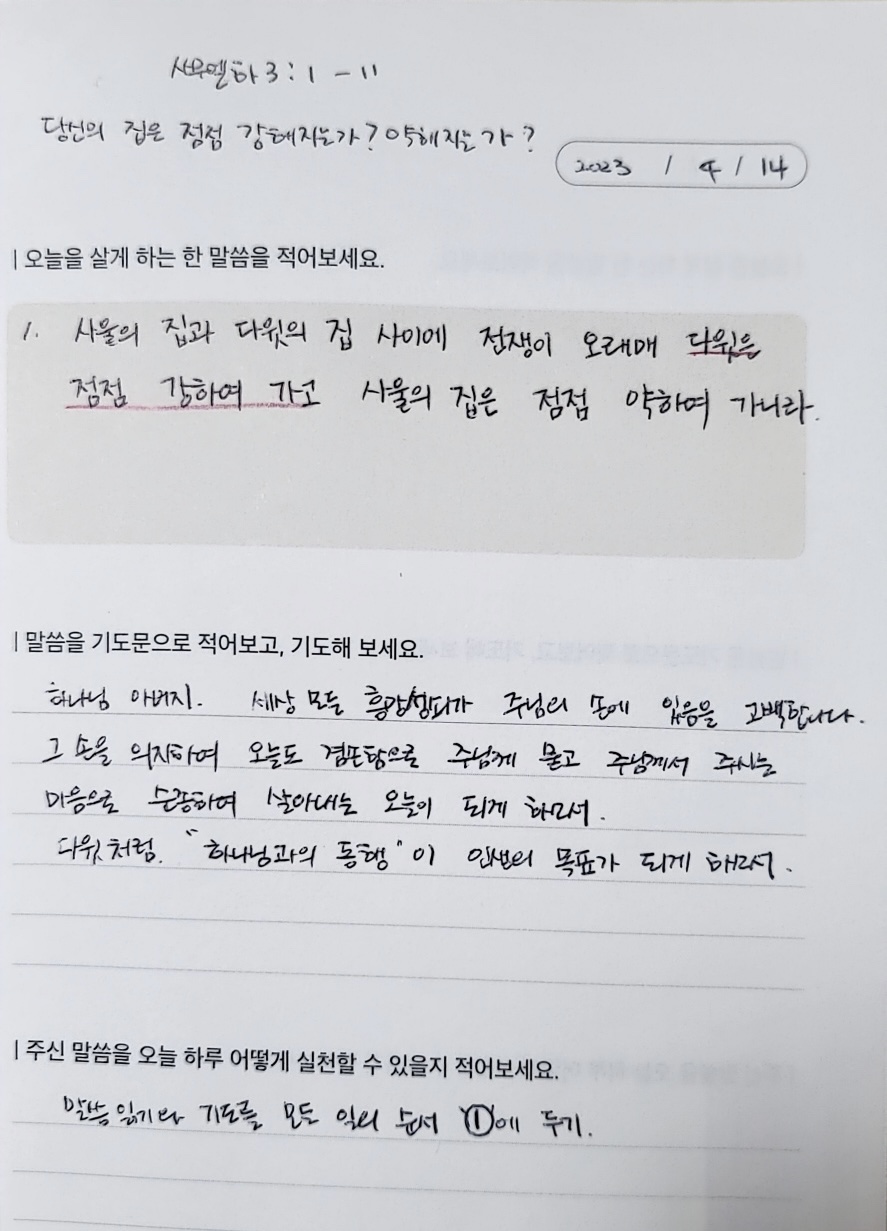 사무엘하 3:1-11
당신의 집은 점점 강해지는가? 약해지는가?
2023 / 4 / 14
오늘을 살게 하는 한 말씀을 적어보세요.
1. 사울의 집과 다윗의 집 사이에 전쟁이 오래매 다윗은
점점 강하여 가고 사울의 집은 점점 약하여 가니라.
말씀을 기도문으로 적어보고, 기도해 보세요.
하나님 아버지. 세상 모든 흥망성쇠가 주님의 손에 있음을 고백합니다.
그 손을 의지하여 오늘도 겸손함으로 주님께 묻고 주님께서 주시는
마음으로 순종하여 살아내는 오늘이 되게 하소서.
다윗처럼. "하나님과의 동행"이 인생의 목표가 되게 하소서.
주신 말씀을 오늘 하루 어떻게 실천할 수 있을지 적어보세요.
말씀 읽기와 기도를 모든 일의 순서 ①에 두기.